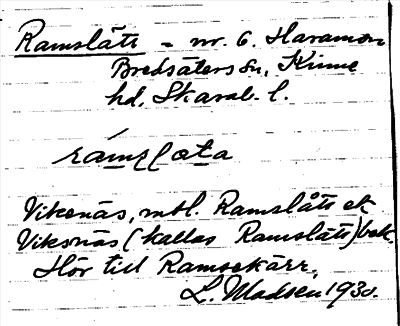 Ramslätt - nr. 6. Haramon
Bredsäters sn, Kinne
hd, Skarab. l.
ramslæta
Viksnäs, mtl. Ramslätt et
Viksnäs (kallas Ramslätt) bek.
Hör till Ramsekärr,
L. Madsen 1930.